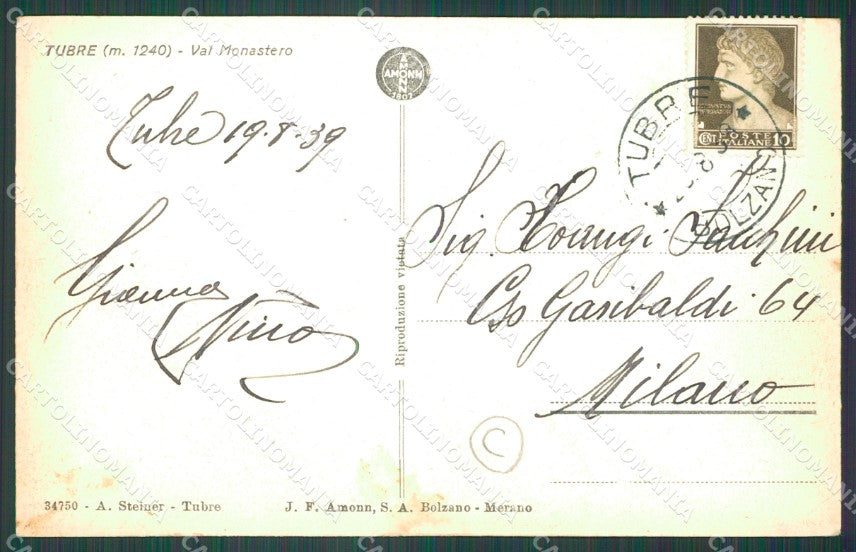 TUBRE (m. 1240) - Val Monastero
AMONN
Tubre 19.8.39
Gianna
Nino
34750 - A. Steiner - Tubre
J. F. Amonn, S. A. Bolzano - Merano
Riproduzione vietata
POSTE
ITALIANE
CENT. 10
TUBRE
BOLZANO
Sig.
Cso Garibaldi 64
Milano
C
CARTOLINOMANIA